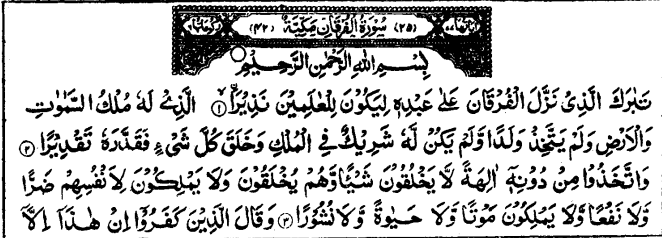 (٢٥) سُوْرَةُ الْفُرْقَانِ مَكِّيَّةٌ (٤٢)
بِسْمِ اللهِ الرَّحْمٰنِ الرَّحِيْمِ
تَبٰرَكَ الَّذِىْ نَزَّلَ الْفُرْقَانَ عَلٰى عَبْدِهٖ لِيَكُوْنَ لِلْعٰلَمِيْنَ نَذِيْرًا ۙ﴿١﴾ الَّذِىْ لَهٗ مُلْكُ السَّمٰوٰتِ
وَالْاَرْضِ وَلَمْ يَتَّخِذْ وَلَدًا وَّلَمْ يَكُنْ لَّهٗ شَرِيْكٌ فِى الْمُلْكِ وَخَلَقَ كُلَّ شَىْءٍ فَقَدَّرَهٗ تَقْدِيْرًا ﴿٢﴾
وَاتَّخَذُوْا مِنْ دُوْنِهٖٓ اٰلِهَةً لَّا يَخْلُقُوْنَ شَيْئًا وَّهُمْ يُخْلَقُوْنَ وَلَا يَمْلِكُوْنَ لِاَنْفُسِهِمْ ضَرًّا
وَّلَا نَفْعًا وَّلَا يَمْلِكُوْنَ مَوْتًا وَّلَا حَيٰوةً وَّلَا نُشُوْرًا ﴿٣﴾ وَقَالَ الَّذِيْنَ كَفَرُوْٓا اِنْ هٰذَآ اِلَّآ